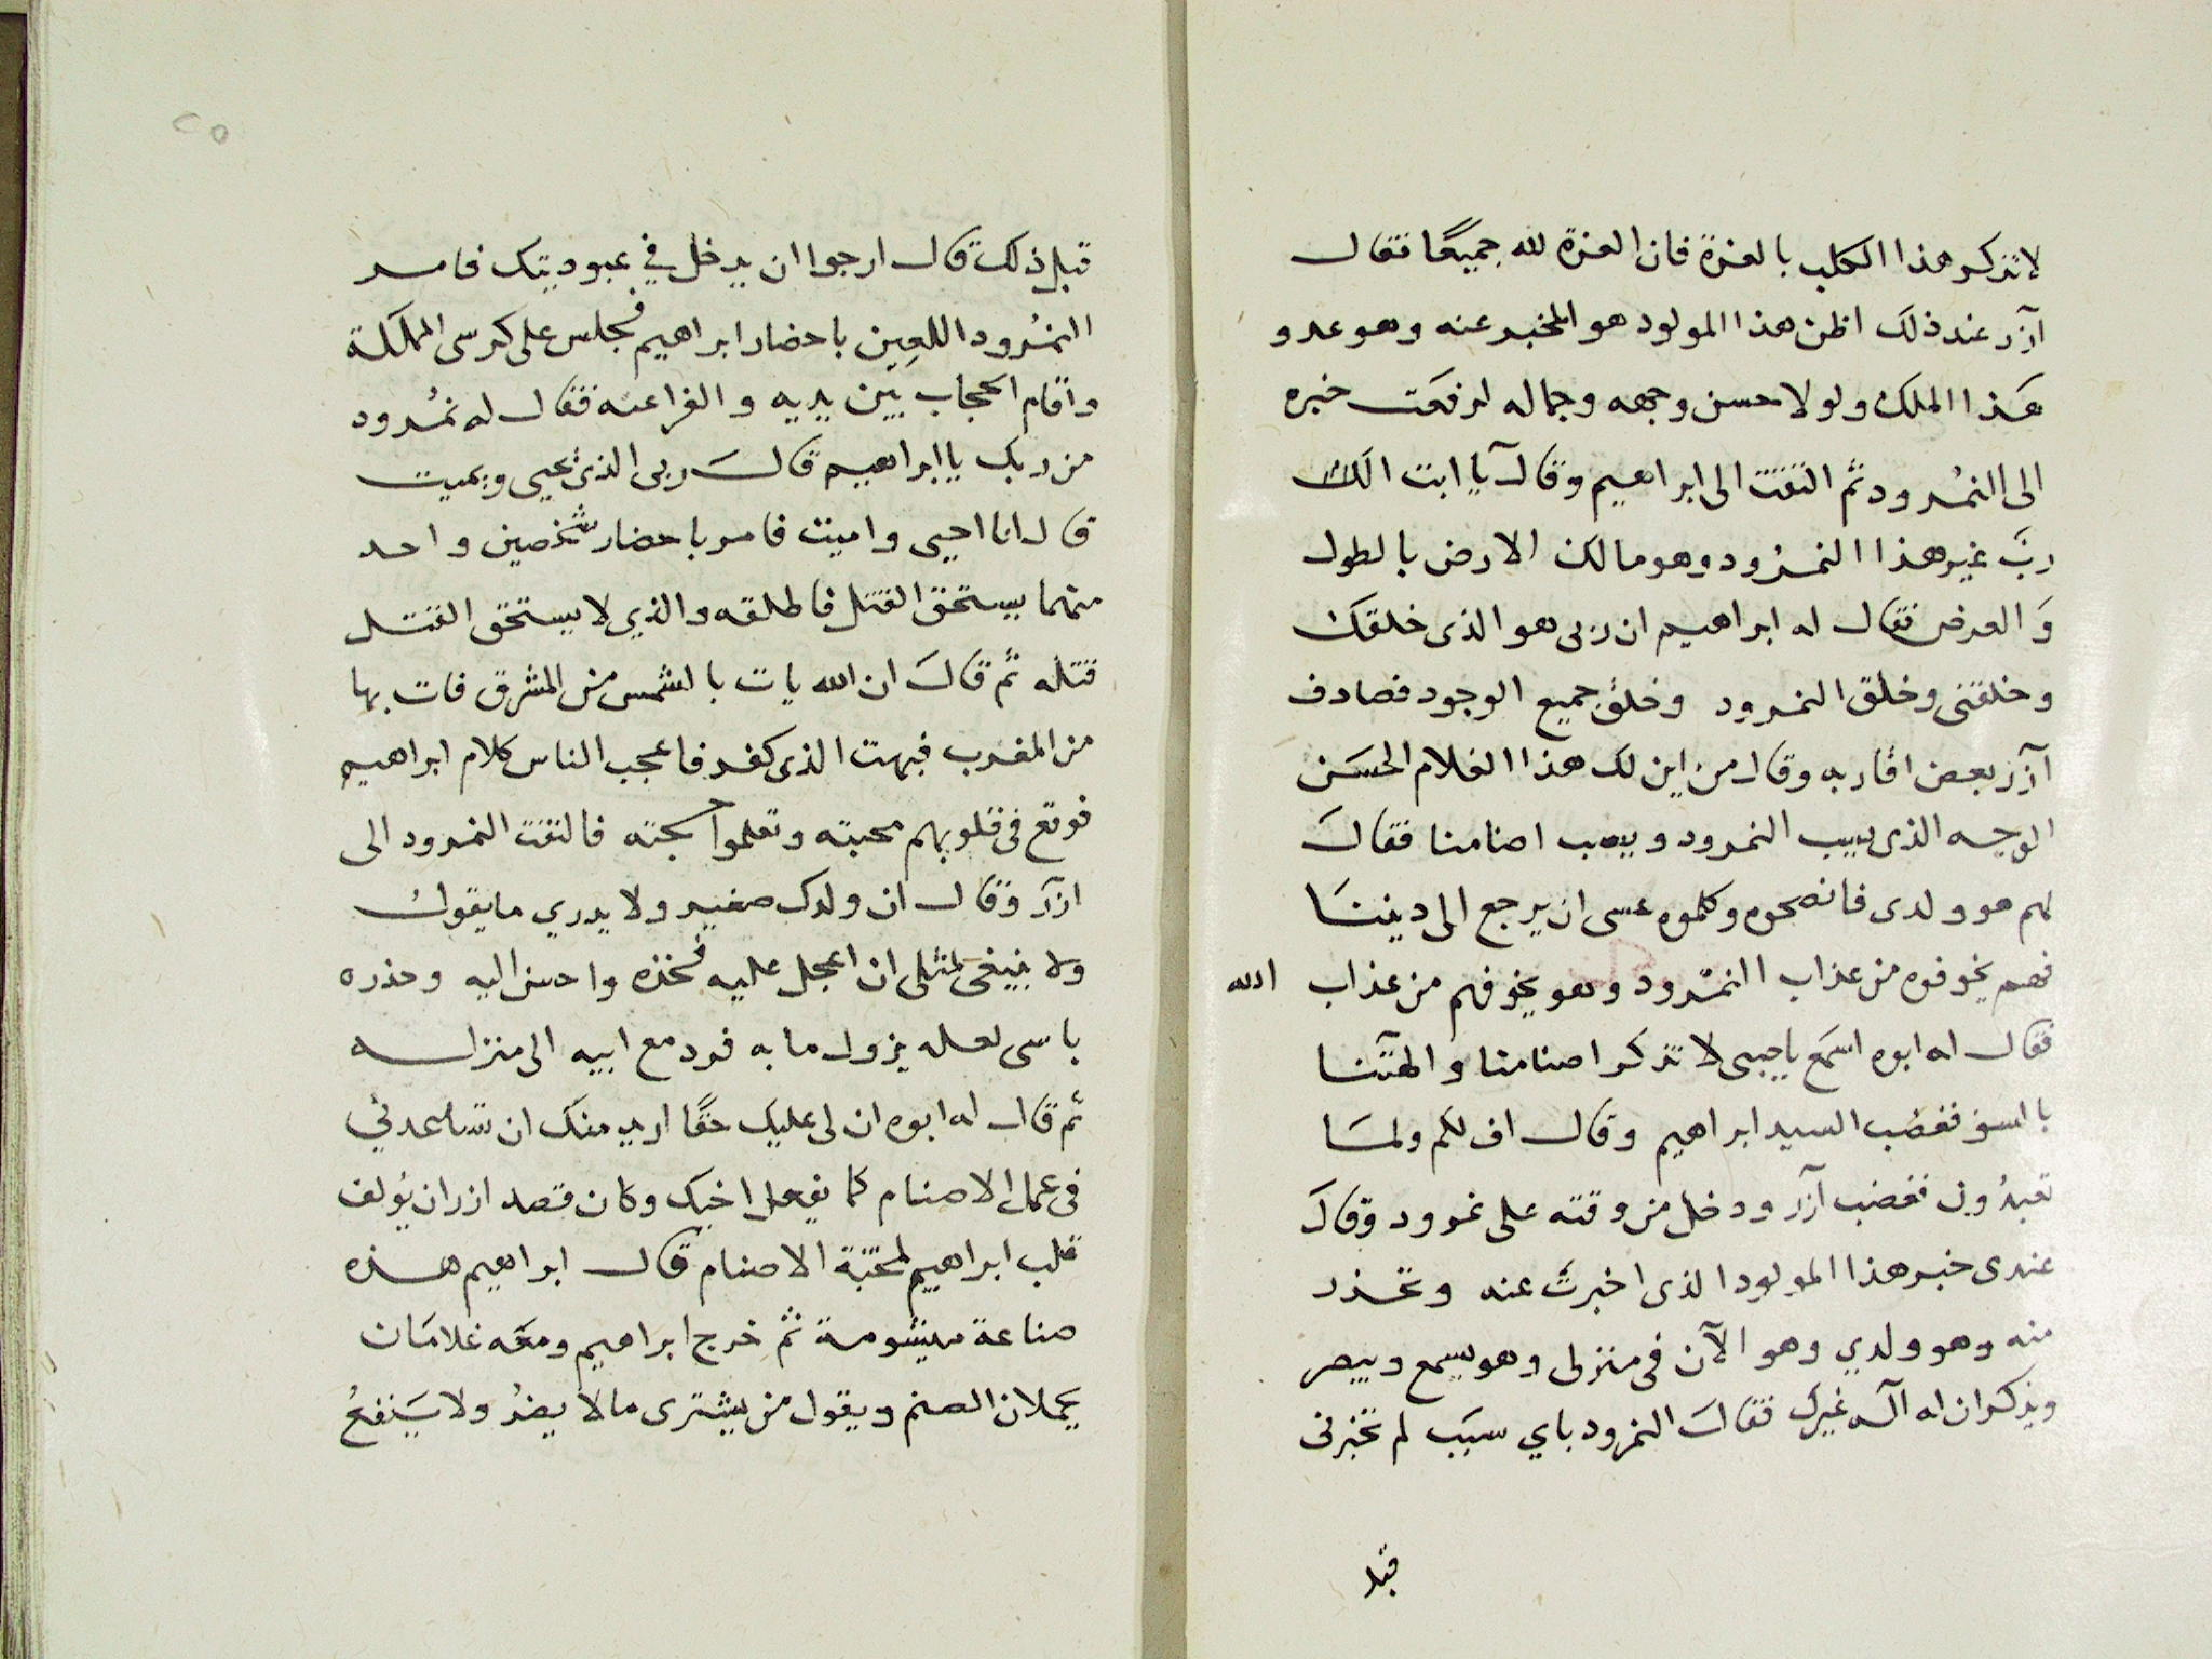 لا تذكر هذا الكلب بالعزة فان العزة لله جميعًا فقال
آزر عند ذلك اظن هذا المولود هو المخبر عنه وهو عدو
هَذا الملك ولولا حسن وجهه وجماله لرفعت خبره
الى النمُرود ثم التفت الى ابراهيم وقال يا ابت الَكَ
ربَّ غير هذا النمُرود وهو مالك الارض بالطول
وَالعرض فقال له ابراهيم ان ربى هو الذى خلقك
وخلقنى وخلق النمرود وخلق جميع الوجود فصادف
آزر بعض اقاربه وقال من اين لك هذا الغلام الحسَن
الوجه الذى يسب النمرود ويسب اصنامنا فقالَ
لهم هو ولدى فانصحوه وكلموه عسى ان يرجع الى ديننَا
فهم يخوفوه من عذاب النمُرود وهو يخوفهم من عذاب الله
فقال له ابوه اسمَع يا حبيبى لا تذكر اصنامنا والهتَنا
بالسؤ فغضب السيد ابراهيم وقال اف لكم ولمَا
تعبدُون فغضب آزر ودخل من وقته على نمرود وقالَ
عندى خبر هذا المولود الذى اخبرتَ عنه وتحذر
منه وهو ولدي وهو الآن فى منزلى وهو يسمع ويبصر
ويذكر ان له آله غيرك فقالَ النمرود باي سَبَب لم تخبرنى
قبل
٢٥
قبل ذلك قال ارجوا ان يدخل في عبوديتك فامر
النمُرود اللعين باحضار ابراهيم فجلس على كرسى المملكة
واقام الحجاب بَين يديه والفراعنه فقال له نمُرود
من ربك يا ابراهيم قالَ ربى الذى يحيى ويميت
قال انا احيى واميت فامر باحضار شخصين واحد
منهما يستحق القتل فاطلقه والذي لا يستحق القتل
قتله ثم قالَ ان الله يات بالشمس من المشرق فات بها
من المغرب فبهت الذى كفر فاعجب الناس كلام ابراهيم
فوقع فى قلوبهم محبته وتعلموا حجته فالتفت النمرود الى
ازَر وقال ان ولدك صغير ولا يدري ما يقول
ولا ينبغى لمثلى ان اعجل عليه فخذه واحسن اليه وحذره
باسى لعله يزول ما به فرد مع ابيه الى منزله
ثم قال له ابوه ان لى عليك حقًا اريد منك ان تساعدني
فى عمل الاصنام كما يفعل اخيك وكان قصد ازر ان يؤلف
قلب ابراهيم لمحبّة الاصنام قال ابراهيم هذه
صناعة ميشومة ثم خرج ابراهيم ومعَه غلامَان
يحملان الصنم ويقول من يشترى ما لا يضرُ ولا ينفعُ